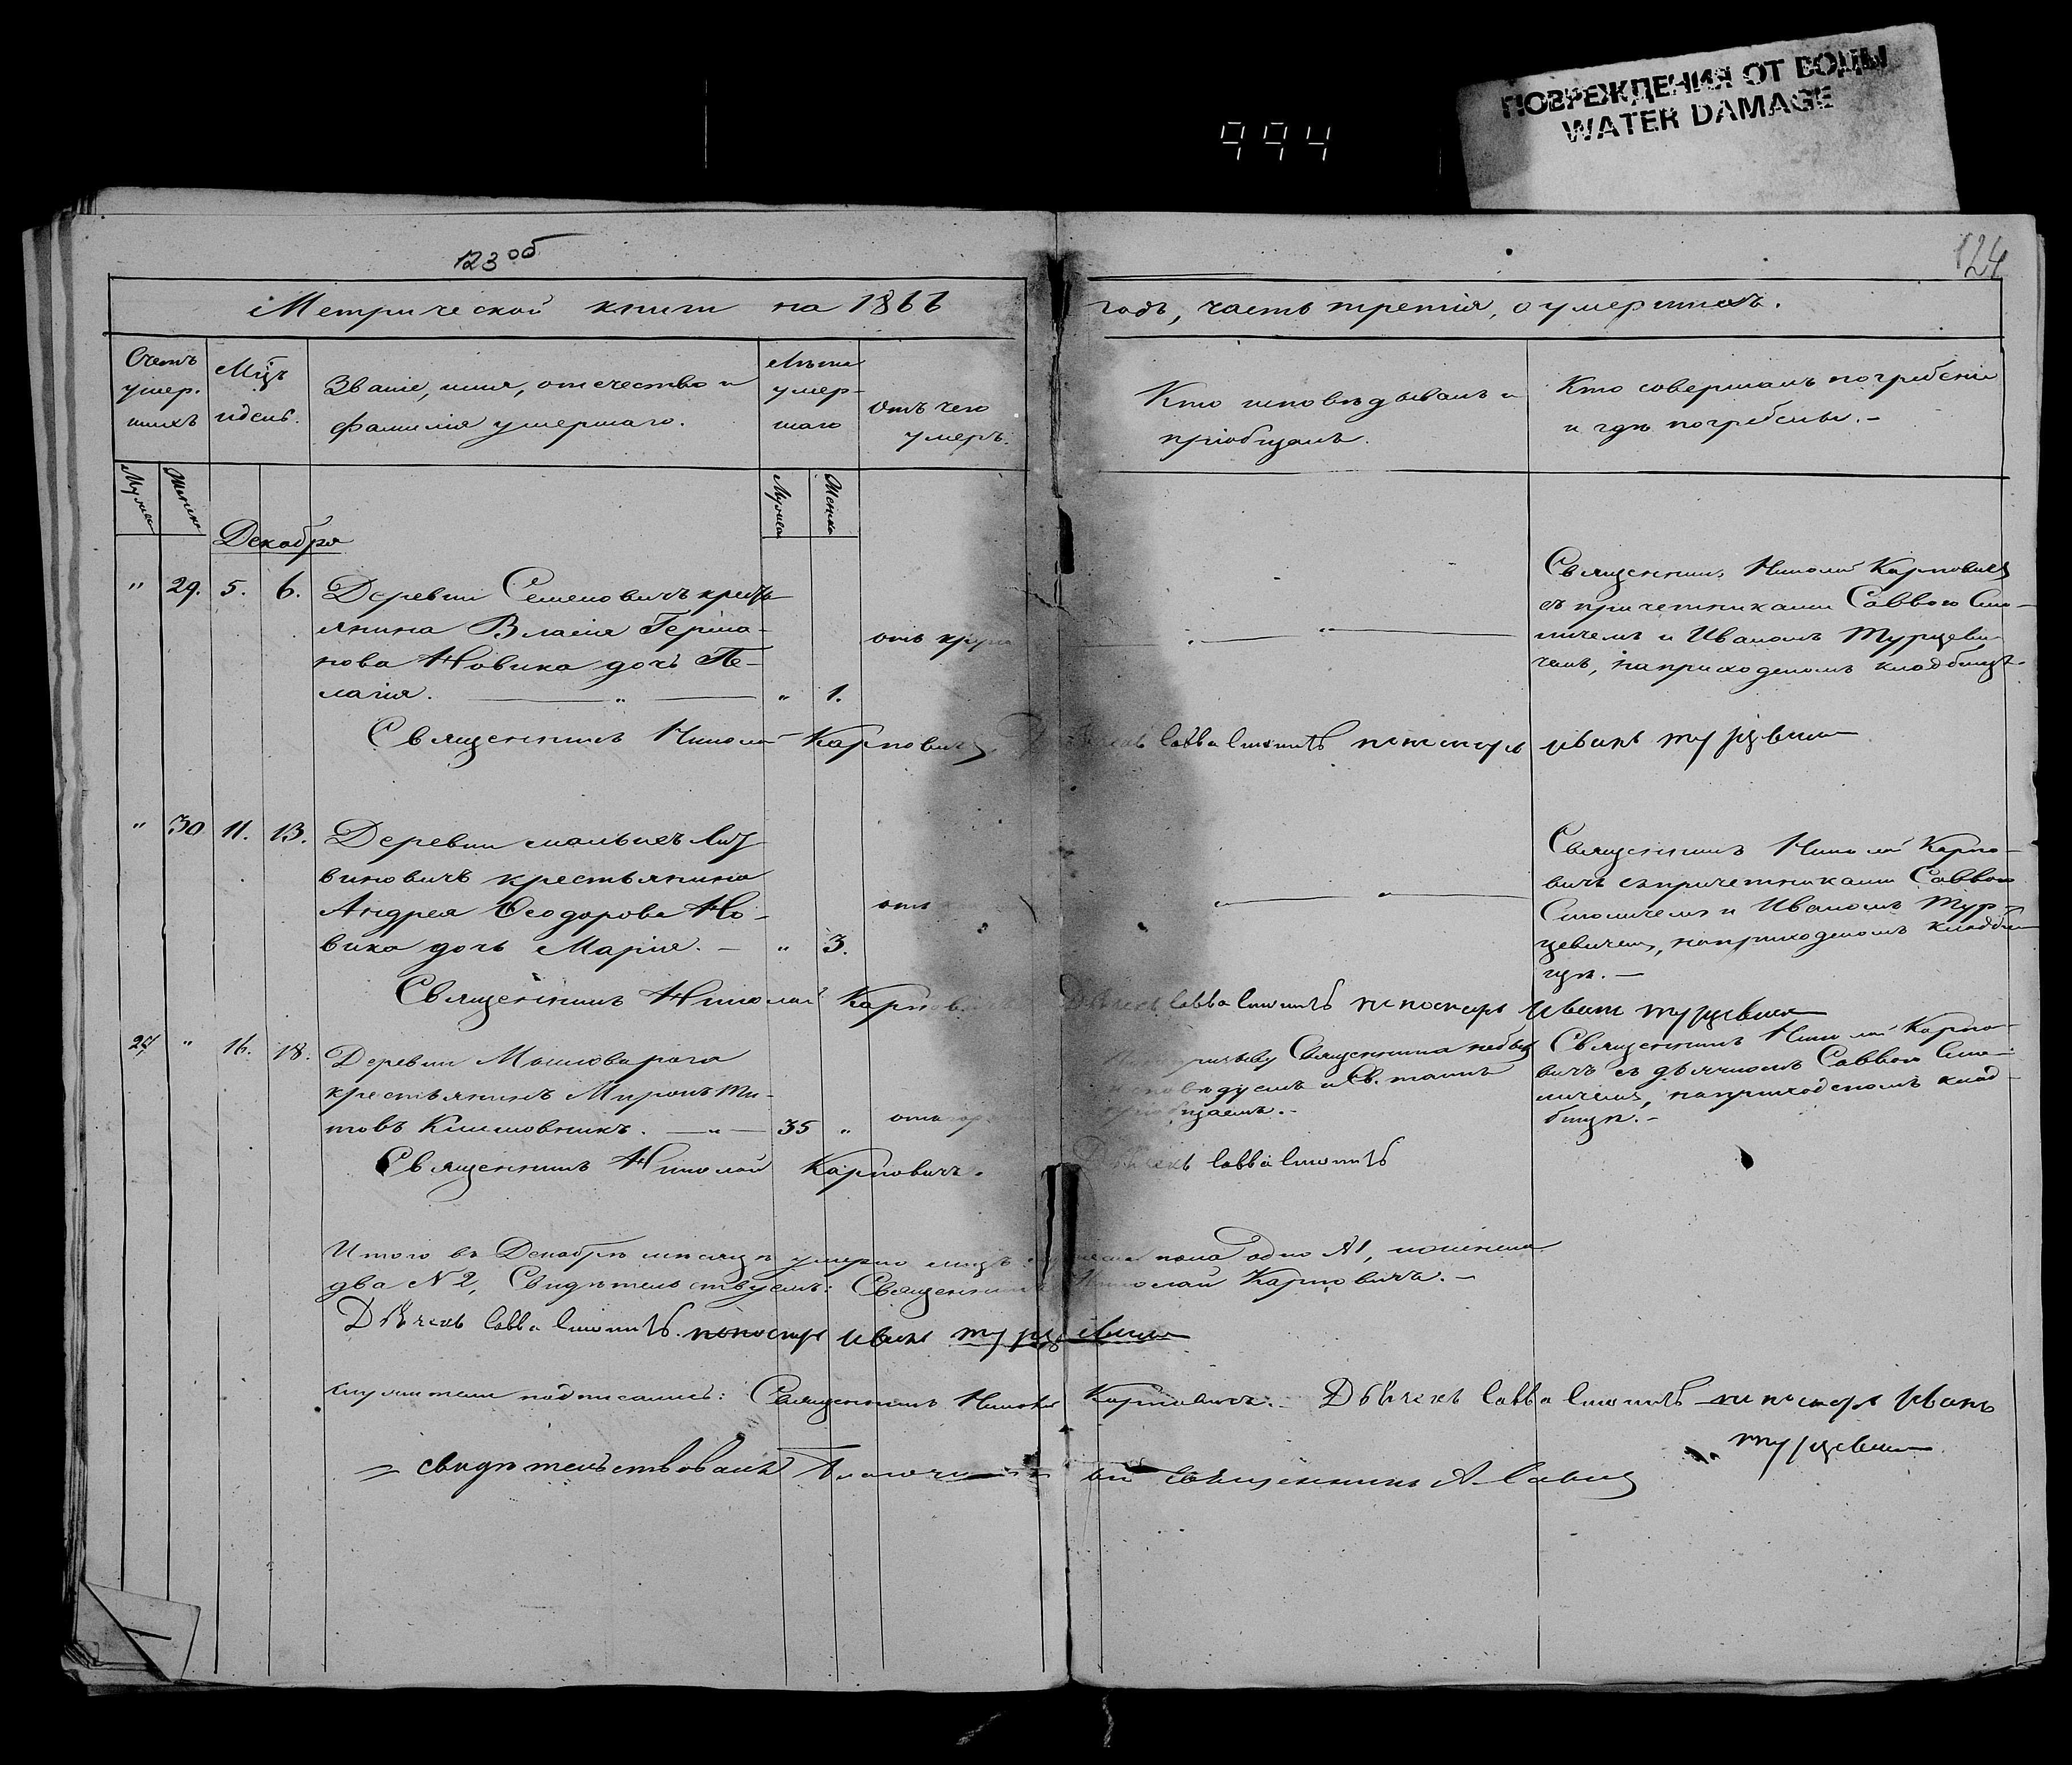 ПОВРЕЖДЕНИЯ ОТ ВОДЫ
WATER DAMAGE
994
123 об
124
Метрической книги на 1866 годъ, часть третія, о умершихъ.
Счетъ умер-шихъ
Мцъ и день.
Званіе, имя, отечество и фамилія умершаго.
Лѣта умер-шаго
Отъ чего умеръ.
Кто исповѣдывалъ и пріобщалъ.
Кто совершалъ погребеніе и гдѣ погребены.-
Мужеска
Женска
Мужеска
Женска
Декабря
" 29. 5. 6.
Деревни Семеновичъ кресть-
янина Власія Герма-
нова Новика дочь Пе-
лагія. " " 1.
отъ
Священникъ Николай Карповичъ
съ причетниками Саввою Сmo-
личемъ и Иваномъ Турцеви-
чемъ, на приходскомъ кладбищѣ.
Священникъ Николай Карповичъ Савва пономарь Иванъ Турцевичъ
" 30 11. 13.
Деревни малыхъ
виновичъ крестьянина
Андрея Ѳеодорова Но-
вика дочь Марія. - " 3.
отъ
Священникъ Николай Карпо-
вичъ съ причетниками Саввою
и Иваномъ Тур-
цевичемъ, на приходскомъ кладби-
щѣ. -
Священникъ Николай Карповичъ Дьячекъ Савва пономарь Иванъ Турцевичъ
27 " 16. 18.
Деревни
крестьянинъ Миронъ Ти-
товъ Климовникъ. - " - 35 "
Священника небылъ
исповѣдуемъ и Св. таинъ
пріобщаемъ.-
Священникъ Николай Карпо-
вичъ съ дьячкомъ Саввою
на приходскомъ клад-
бищѣ.-
Священникъ Николай Карповичъ. Дьячекъ Савва
Итого въ Декабрѣ мѣсяцѣ умерло лицъ пола одно №1, женска
два №2, Свидѣтельствуемъ: Священникъ Николай Карповичъ.-
Дьячекъ Савва пономарь Иванъ Турцевичъ
подписались: Священникъ Николай Карповичъ. Дьячекъ Савва пономарь Иванъ
Турцевичъ
свидѣтельствовалъ Благочинный Священникъ А.